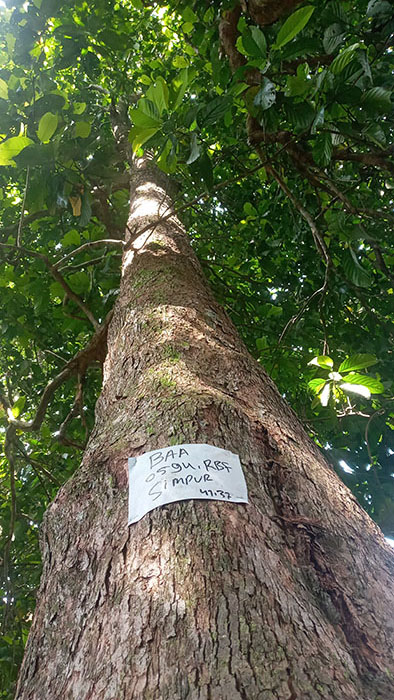 BAA
0594, RBF
SIMPUR
47.37